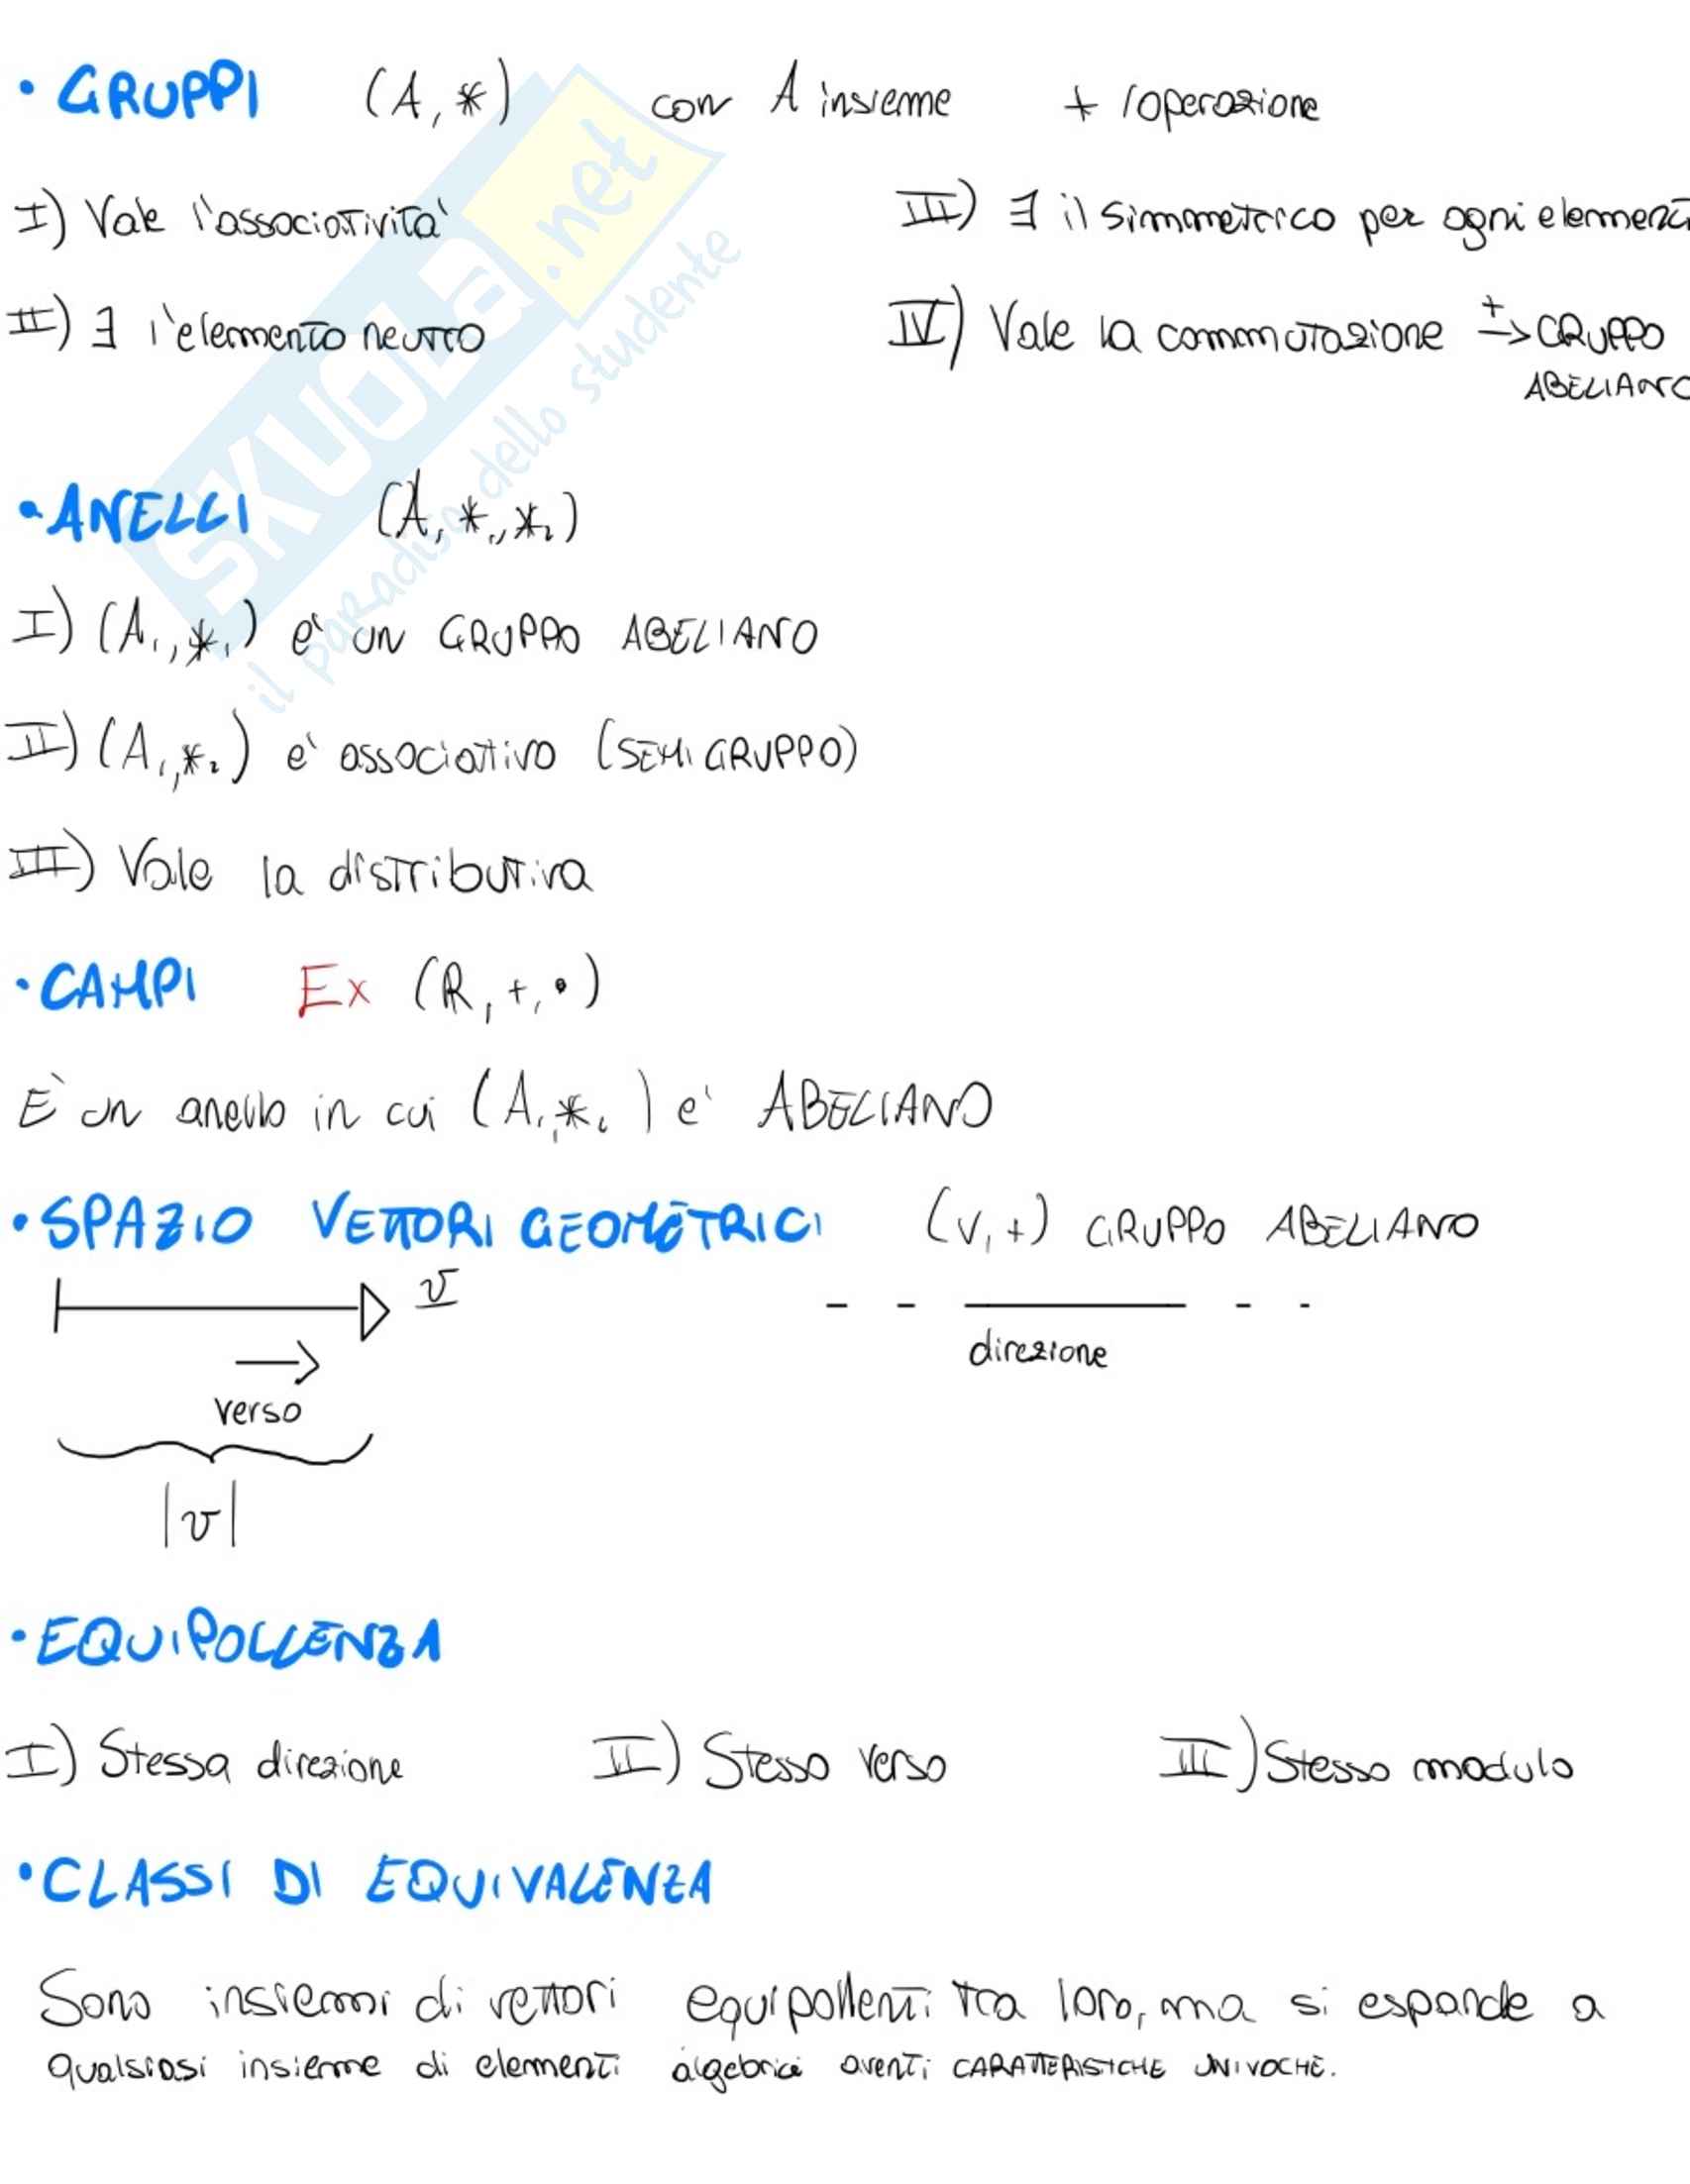 • GRUPPI (A, *) con A insieme + 1operazione
I) Vale l'associatività III) ∃ il simmetrico per ogni element
II) ∃ l'elemento neutro IV) Vale la commutazione +-> GRUPPO
ABELIANO
• ANELLI (A, *₁, *₂)
I) (A, *₁) e' un GRUPPO ABELIANO
II) (A, *₂) e' associativo (SEMIGRUPPO)
III) Vale la distributiva
• CAMPI Ex (ℝ, +, •)
È un anello in cui (A, *₂) e' ABELIANO
• SPAZIO VETTORI GEOMETRICI (V, +) GRUPPO ABELIANO
v
direzione
verso
|v|
• EQUIPOLLENZA
I) Stessa direzione II) Stesso verso III) Stesso modulo
• CLASSI DI EQUIVALENZA
Sono insiemi di vettori equipollenti tra loro, ma si espande a
qualsiasi insieme di elementi algebrici aventi CARATTERISTICHE UNIVOCHE.
SKUOLa.net
il paradiso dello studente